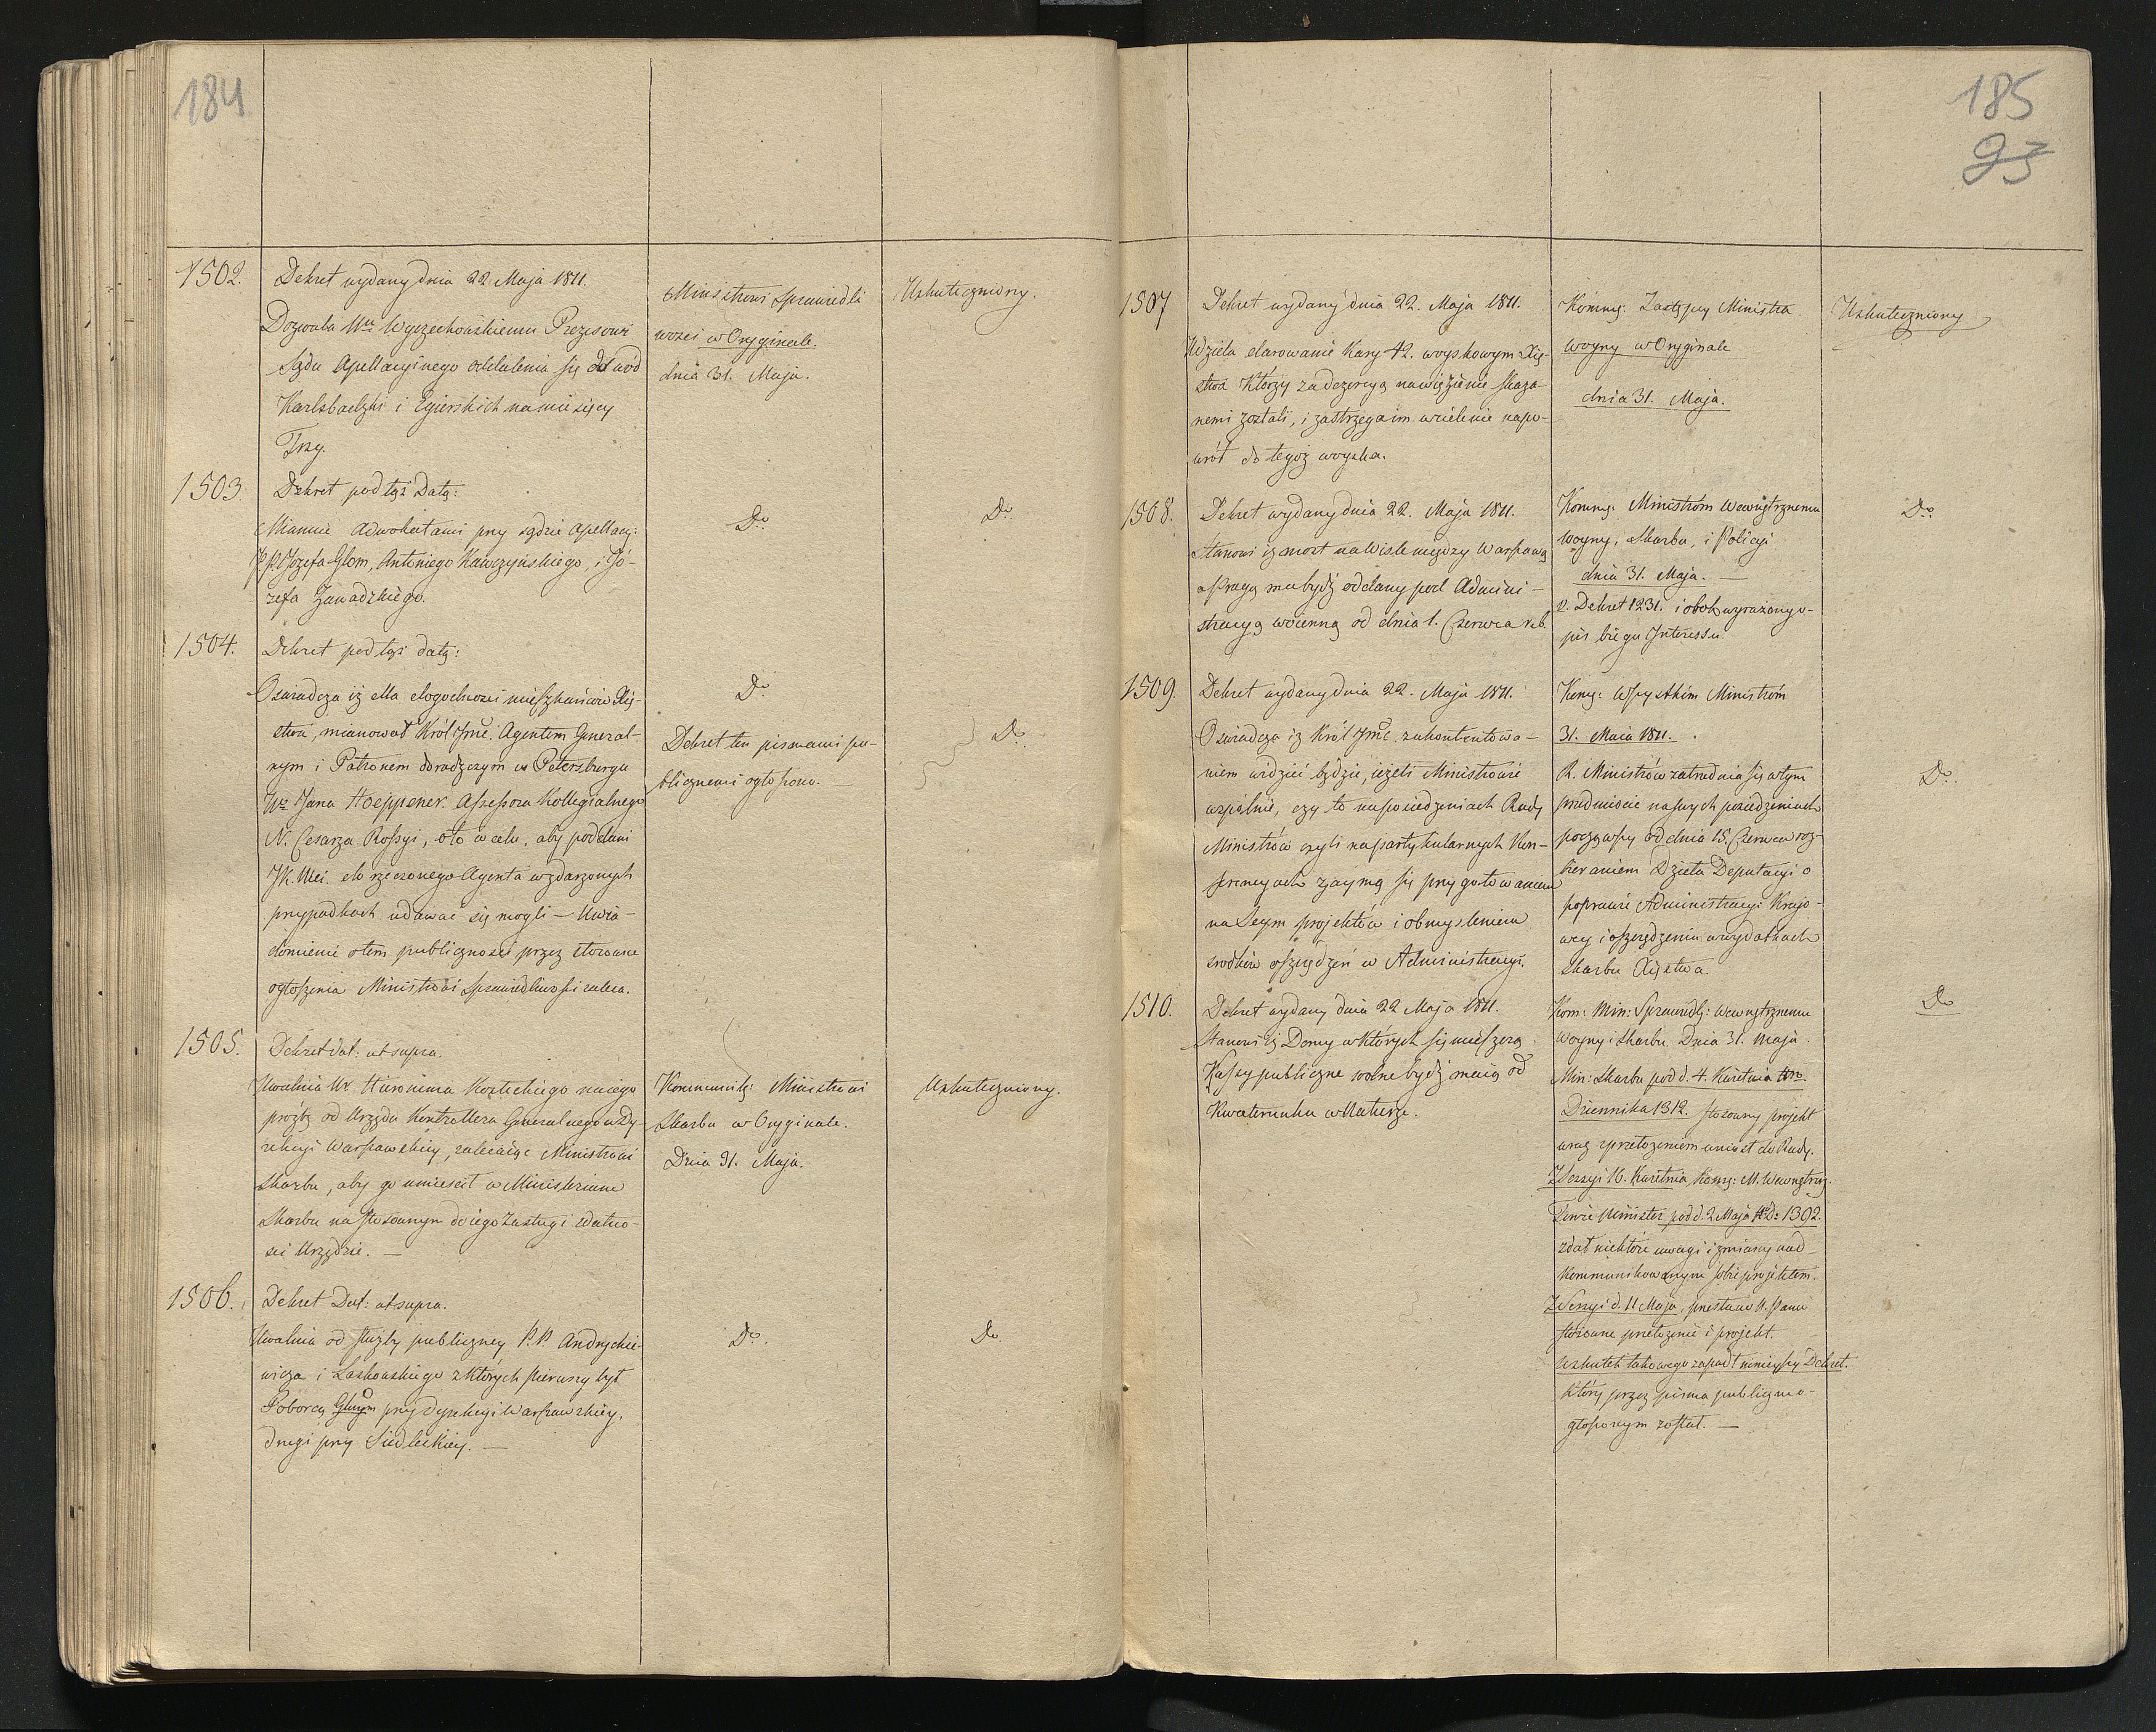 184
1502.
Dekret wydany dnia 22 Maja 1811.
Dozwala Wu Wyczechowskiemu Prezesowi
Sądu Apellacyinego oddalenia się do wód
Karlsbadzki i Egierskich na miesięcy
Trzy.
Ministrowi Sprawiedli
wości w Oryginale.
dnia 31. Maja.
Uskuteczniony.
1503.
Dekret pod tąż Datą:
Mianuie Adwokatami przy sądzie Apellacy:
P.P. Józefa Glom, Antoniego Kawczyńskiego, i Jó-
zefa Zawadzkiego.
Do
Do
1504.
Dekret pod tąż datą:
Oświadcza iż dla dogodności mieszkańców Xię-
stwa, mianował Król Jmć. Agentem General-
nym i Patronem doradczym w Petersburgu
Wo Jana Hoeppener. Assessora Kollegialnego
N. Cesarza Rossyi, a to w celu, aby poddani
JK. Mci. do rzeczonego Agenta w zdarzonych
przypadkach udawać się mogli – Uwia-
domienie o tem publiczności przez stosowne
ogłoszenia Ministrowi Sprawiedliwości zaleca.
Do
Dekret ten pismami pu-
blicznemi ogłoszono. —
Do
1505.
Dekret dat: ut supra.
Uwalnia W. Hieronima Kozieckiego na iego
prośbę od Urzędu Kontrollera Generalnego w Dy-
rekcyi Warszawskiey, zalecaiąc Ministrowi
Skarbu, aby go umieścił w Ministerium
Skarbu na stosownym do iego Zasług i zdatno-
ści Urzędzie. —
Kommunik: Ministrowi
Skarbu w Oryginale.
Dnia 31. Maja.
Uskuteczniony.
1506.
Dekret Dat: ut supra.
Uwalnia od służby publiczney P.P. Andrychie-
wicza i Laskowskiego z których pierwszy był
Poborcą Głnym przy dyrekcyi Warszawskiey,
drugi przy Siedleckiey. —
Do.
Do.
185
93
1507
Dekret wydany dnia 22. Maja 1811.
Udziela darowanie Kary 42. woyskowym Xię-
stwa Którzy za dezercyą na więzienie skaza-
nemi zostali, i zastrzega im wcielenie napo-
wrót do tegoż woyska.
Kommu: Zastępcy Ministra
Woyny w Oryginale
dnia 31. Maja.
Uskuteczniony
1508.
Dekret wydany dnia 22. Maja 1811.
Stanowi iż most na Wiśle między Warszawą
a Pragą ma bydź oddany pod Admini-
stracyą woienną od dnia 1. Czerwca r.b.
Kommu: Ministróm Wewnętrznemu
Woyny, Skarbu, i Policyi
dnia 31. Maja. —
v. Dekret 1231. i obok wyrażony o-
pis biegu Interessu.
Do.
1509.
Dekret wydany dnia 22. Maja 1811.
Oświadcza iż Król Jmć z ukontentowa-
niem widzieć będzie, ieżeli Ministrowie
wspólnie, czy to na posiedzeniach Rady
Ministrów czyli na partykularnych Kon-
ferencyach zaymą się przygotowaniem
na Seym projektów i obmyśleniem
środków oszczędzeń w Administracyi.
Komu: Wszystkim Ministróm
31. Maia 1811.
R. Ministrów zatrudnia się w tym
przedmiocie na swych posiedzeniach
począwszy od dnia 15. Czerwca roz-
bieraniem Dzieła Deputacyi o
poprawie Administracyi Krajo-
wey i oszczędzeniu w wydatkach
Skarbu Xięstwa.
Do.
1510.
Dekret wydany dnia 22 Maja 1811.
Stanowi iż Domy w których się mieszczą
Kassy publiczne wolne bydź maią od
Kwaterunku w Naturze.
Kom: Min: Sprawiedl: Wewnętrznemu
Woyny i Skarbu. Dnia 31. Maja.
Min: Skarbu pod d. 4. Kwietnia
Dziennika 1312. stosowny projekt
wraz z przełożeniem wniósł do Rady.
Z Sessyi 16. Kwietnia, Komu: M. Wewnętrzn.
Tenże Minister pod d. 2 Maja 1392.
zdał niektóre uwagi i zmiany nad
kommunikowanym sobie projektem.
Z Sessyi d. 11 Maja, przesłano N. Panu
stosowne przełożenie i projekt.
W skutek takowego zapadł ninieyszy Dekret.
który przez pisma publiczne o-
głoszonym został. —
Do